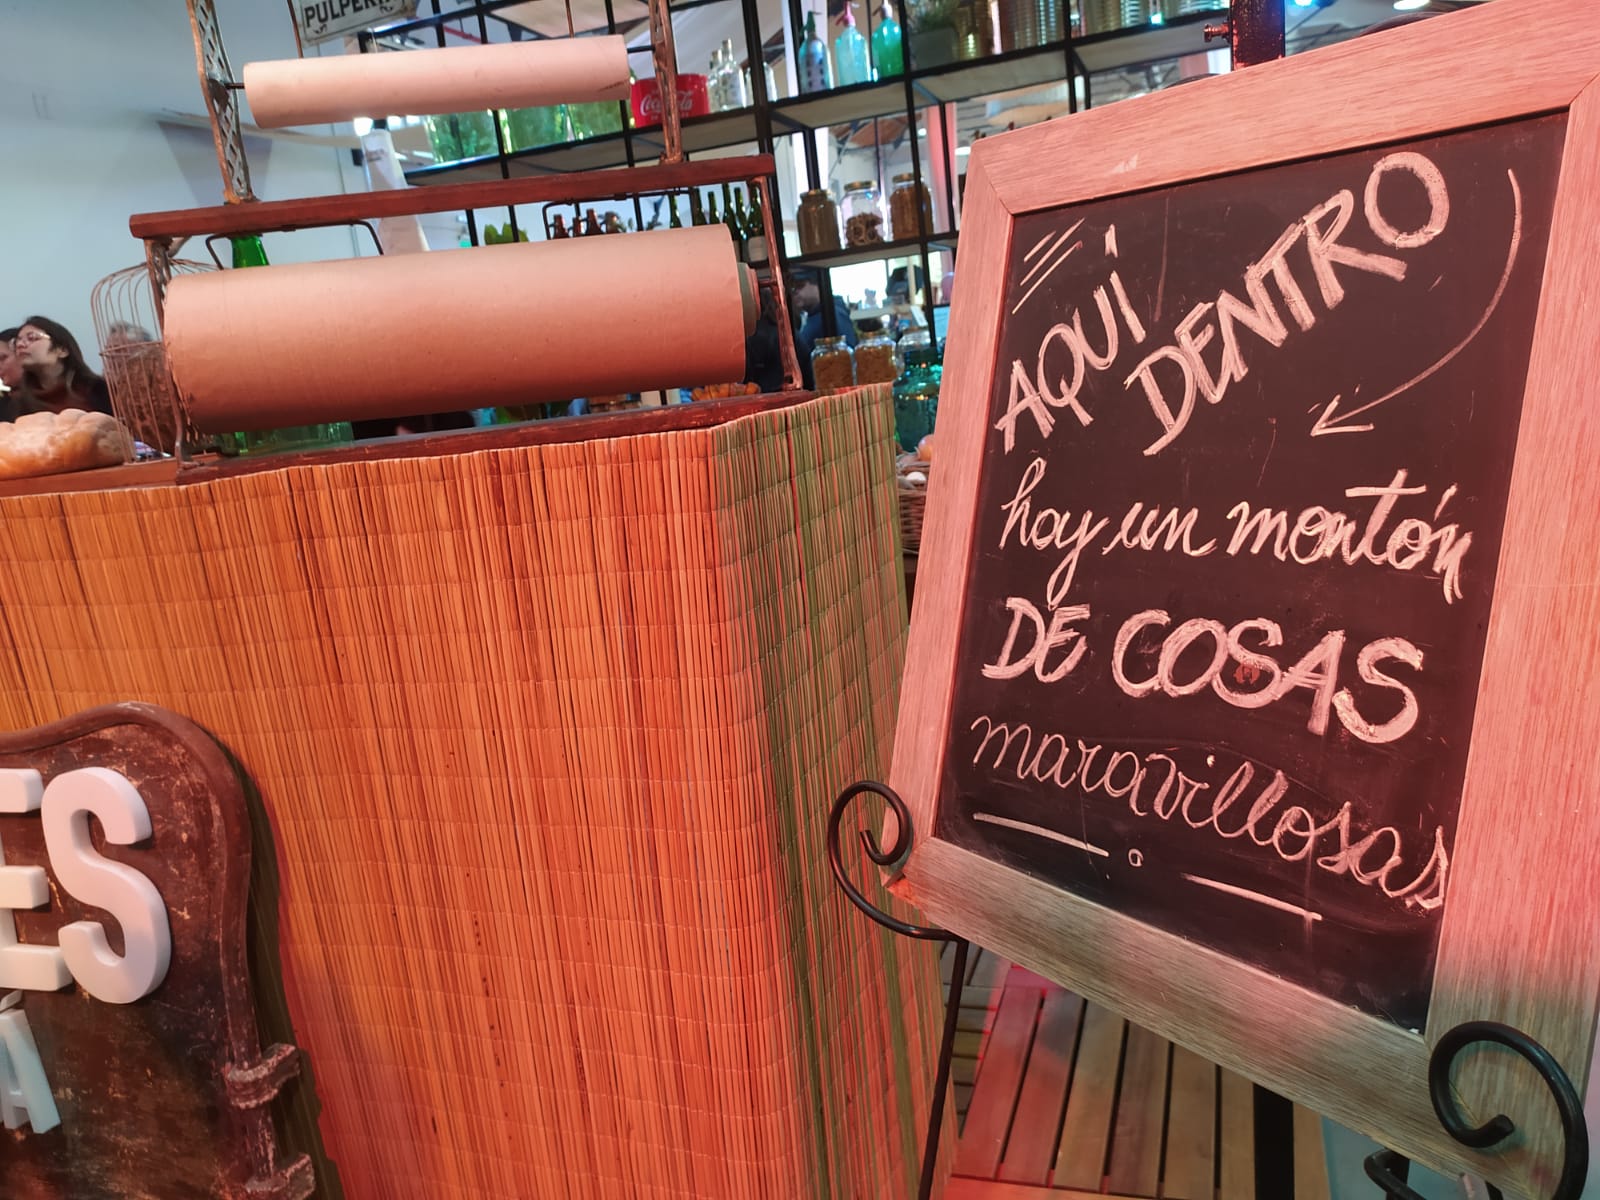 PULPERÍ
Coca-Cola
AQUÍ
DENTRO
hay un montón
DE COSAS
maravillosas
ES
A